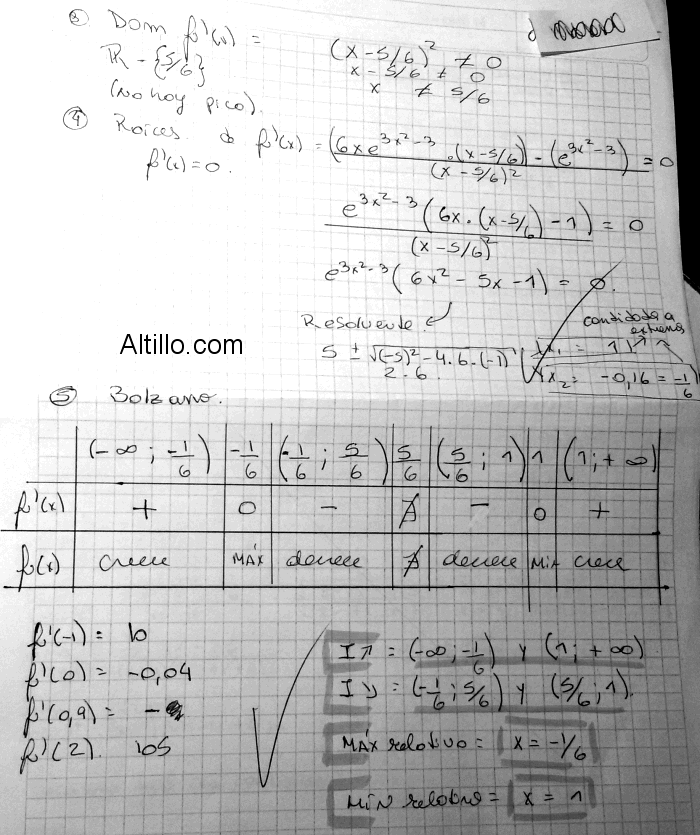 ③ Dom f'(x) =
ℝ - {5/6}
(No hay pico).
(x - 5/6)² ≠ 0
x - 5/6 ≠ 0
x ≠ 5/6
④ Raíces de f'(x) = (6xe^(3x²-3) · (x - 5/6) - (e^(3x²-3)) = 0
(x - 5/6)²
f'(x) = 0.
e^(3x²-3) (6x · (x - 5/6) - 1) = 0
(x - 5/6)²
e^(3x²-3) (6x² - 5x - 1) = 0.
Resolvente.
candidatos a
extremos
5 ± √(-5)² - 4·6·(-1)
2·6
x₁ = 1
x₂ = -0,16 = -1/6
Altillo.com
⑤ Bolzano.
(-∞; -1/6) -1/6 (-1/6; 5/6) 5/6 (5/6; 1) 1 (1; +∞)
f'(x) + 0 - ∄ - 0 +
f(x) crece MÁX decrece ∄ decrece Min crece
f'(-1) = 10
f'(0) = -0,04
f'(0,9) = -
f'(2). 105
I↗ = (-∞; -1/6) y (1; +∞)
I↘ = (-1/6; 5/6) y (5/6; 1).
MÁX relativo = x = -1/6
MIN relativo = x = 1